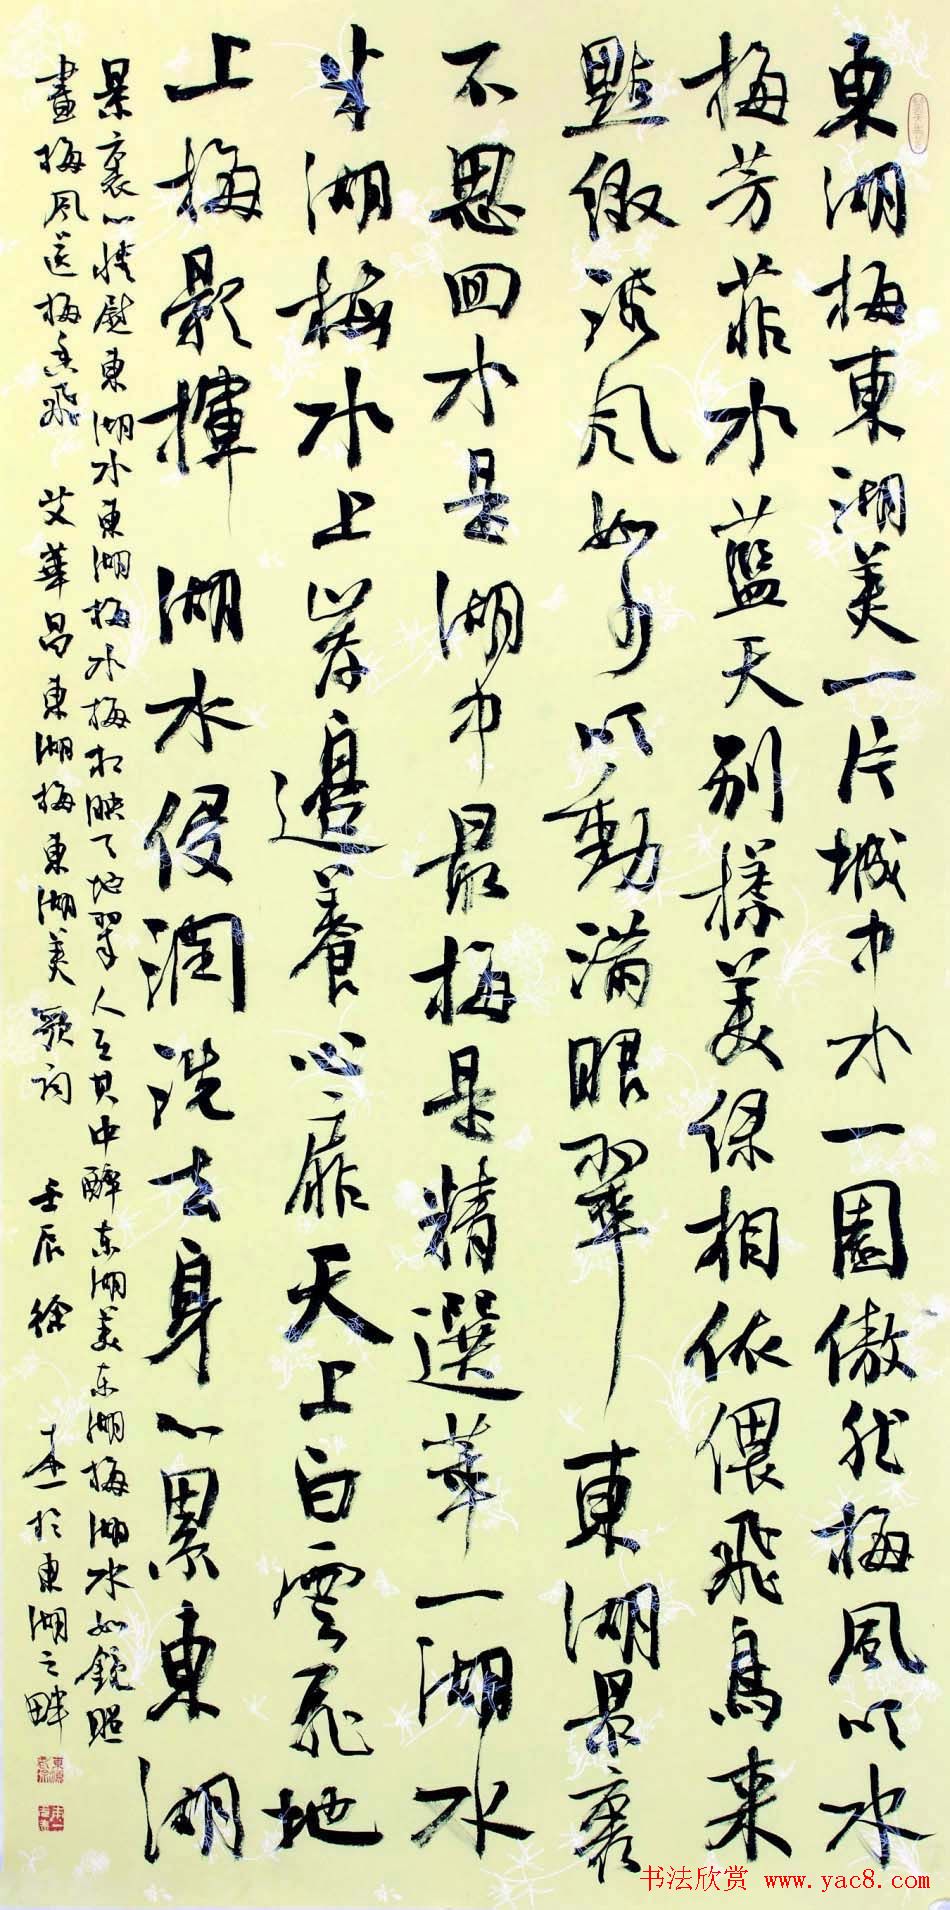 東湖梅東湖美一片城中水一園傲然梅風吹水
梅芳菲水藍天別樣美保相依偎飛鳥来
點緻清風如手吹動滿眼翠 東湖景裏
不思回水是湖中最梅是精選萃一湖水
半湖梅水上岸邊養心扉天上白雲飛地
上梅影揮 湖水侵潤洗去身心累東湖
景裏心情慰東湖水東湖梅水梅相映天地翠人在其中醉东湖美东湖梅湖水如鏡照
畫梅風送梅香飛 艾華昌東湖梅東湖美歌词 壬辰徐 於東湖之畔
书法欣赏 www.yac8.com